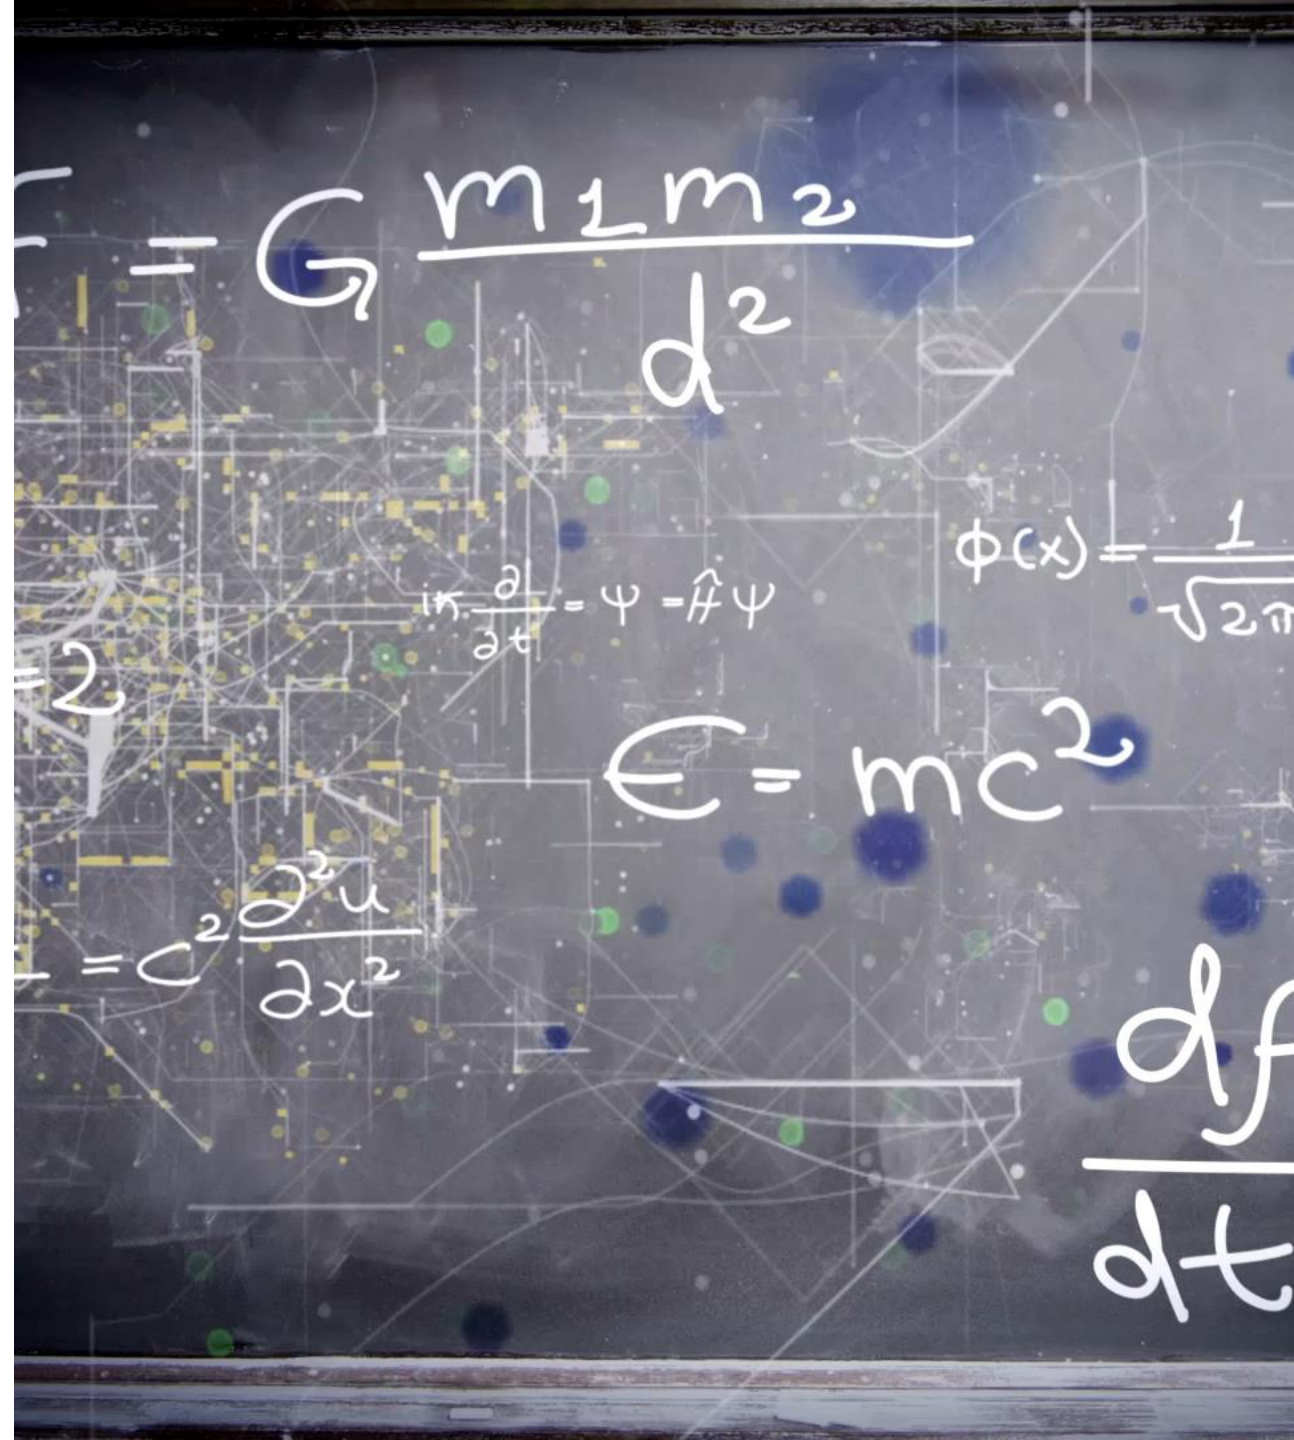 F = G m1m2 / d²
iℏ. ∂/∂t = Ψ = Ĥ Ψ
ϕ(x) = 1 / √2π
=2
E = mc²
= c² ∂²u / ∂x²
df / dt